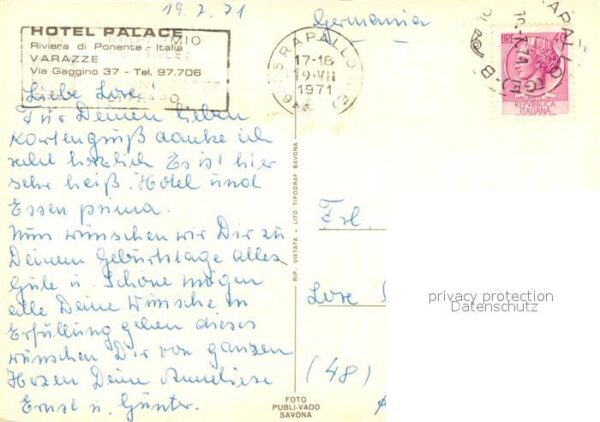 19.7.71
Germania
HOTEL PALACE
Riviera di Ponente - Italia
VARAZZE
Via Gaggino 37 - Tel. 97.706
RAPALLO (GE)
17-18
19.VII
1971
RAPALLO (GE)
LIRE 40
REPVBBLICA
ITALIANA
Liebe Lore!
Für Deinen lieben
Kartengruß danke ich
recht herzlich Es ist hier
sehr heiß. Hotel und
Essen prima.
Nun wünschen wir Dir zu
Deinem Geburtstage alles
Gute u. Schöne mögen
alle Deine Wünsche in
Erfüllung gehen dieses
wünschen Dir von ganzen
Herzen Deine Anneliese
Ernst u. Günter.
RIP. VIETATA - LITO TIPOGRAF SAVONA
FOTO
PUBLI-VADO
SAVONA
Frl.
Lore
(48)
privacy protection
Datenschutz